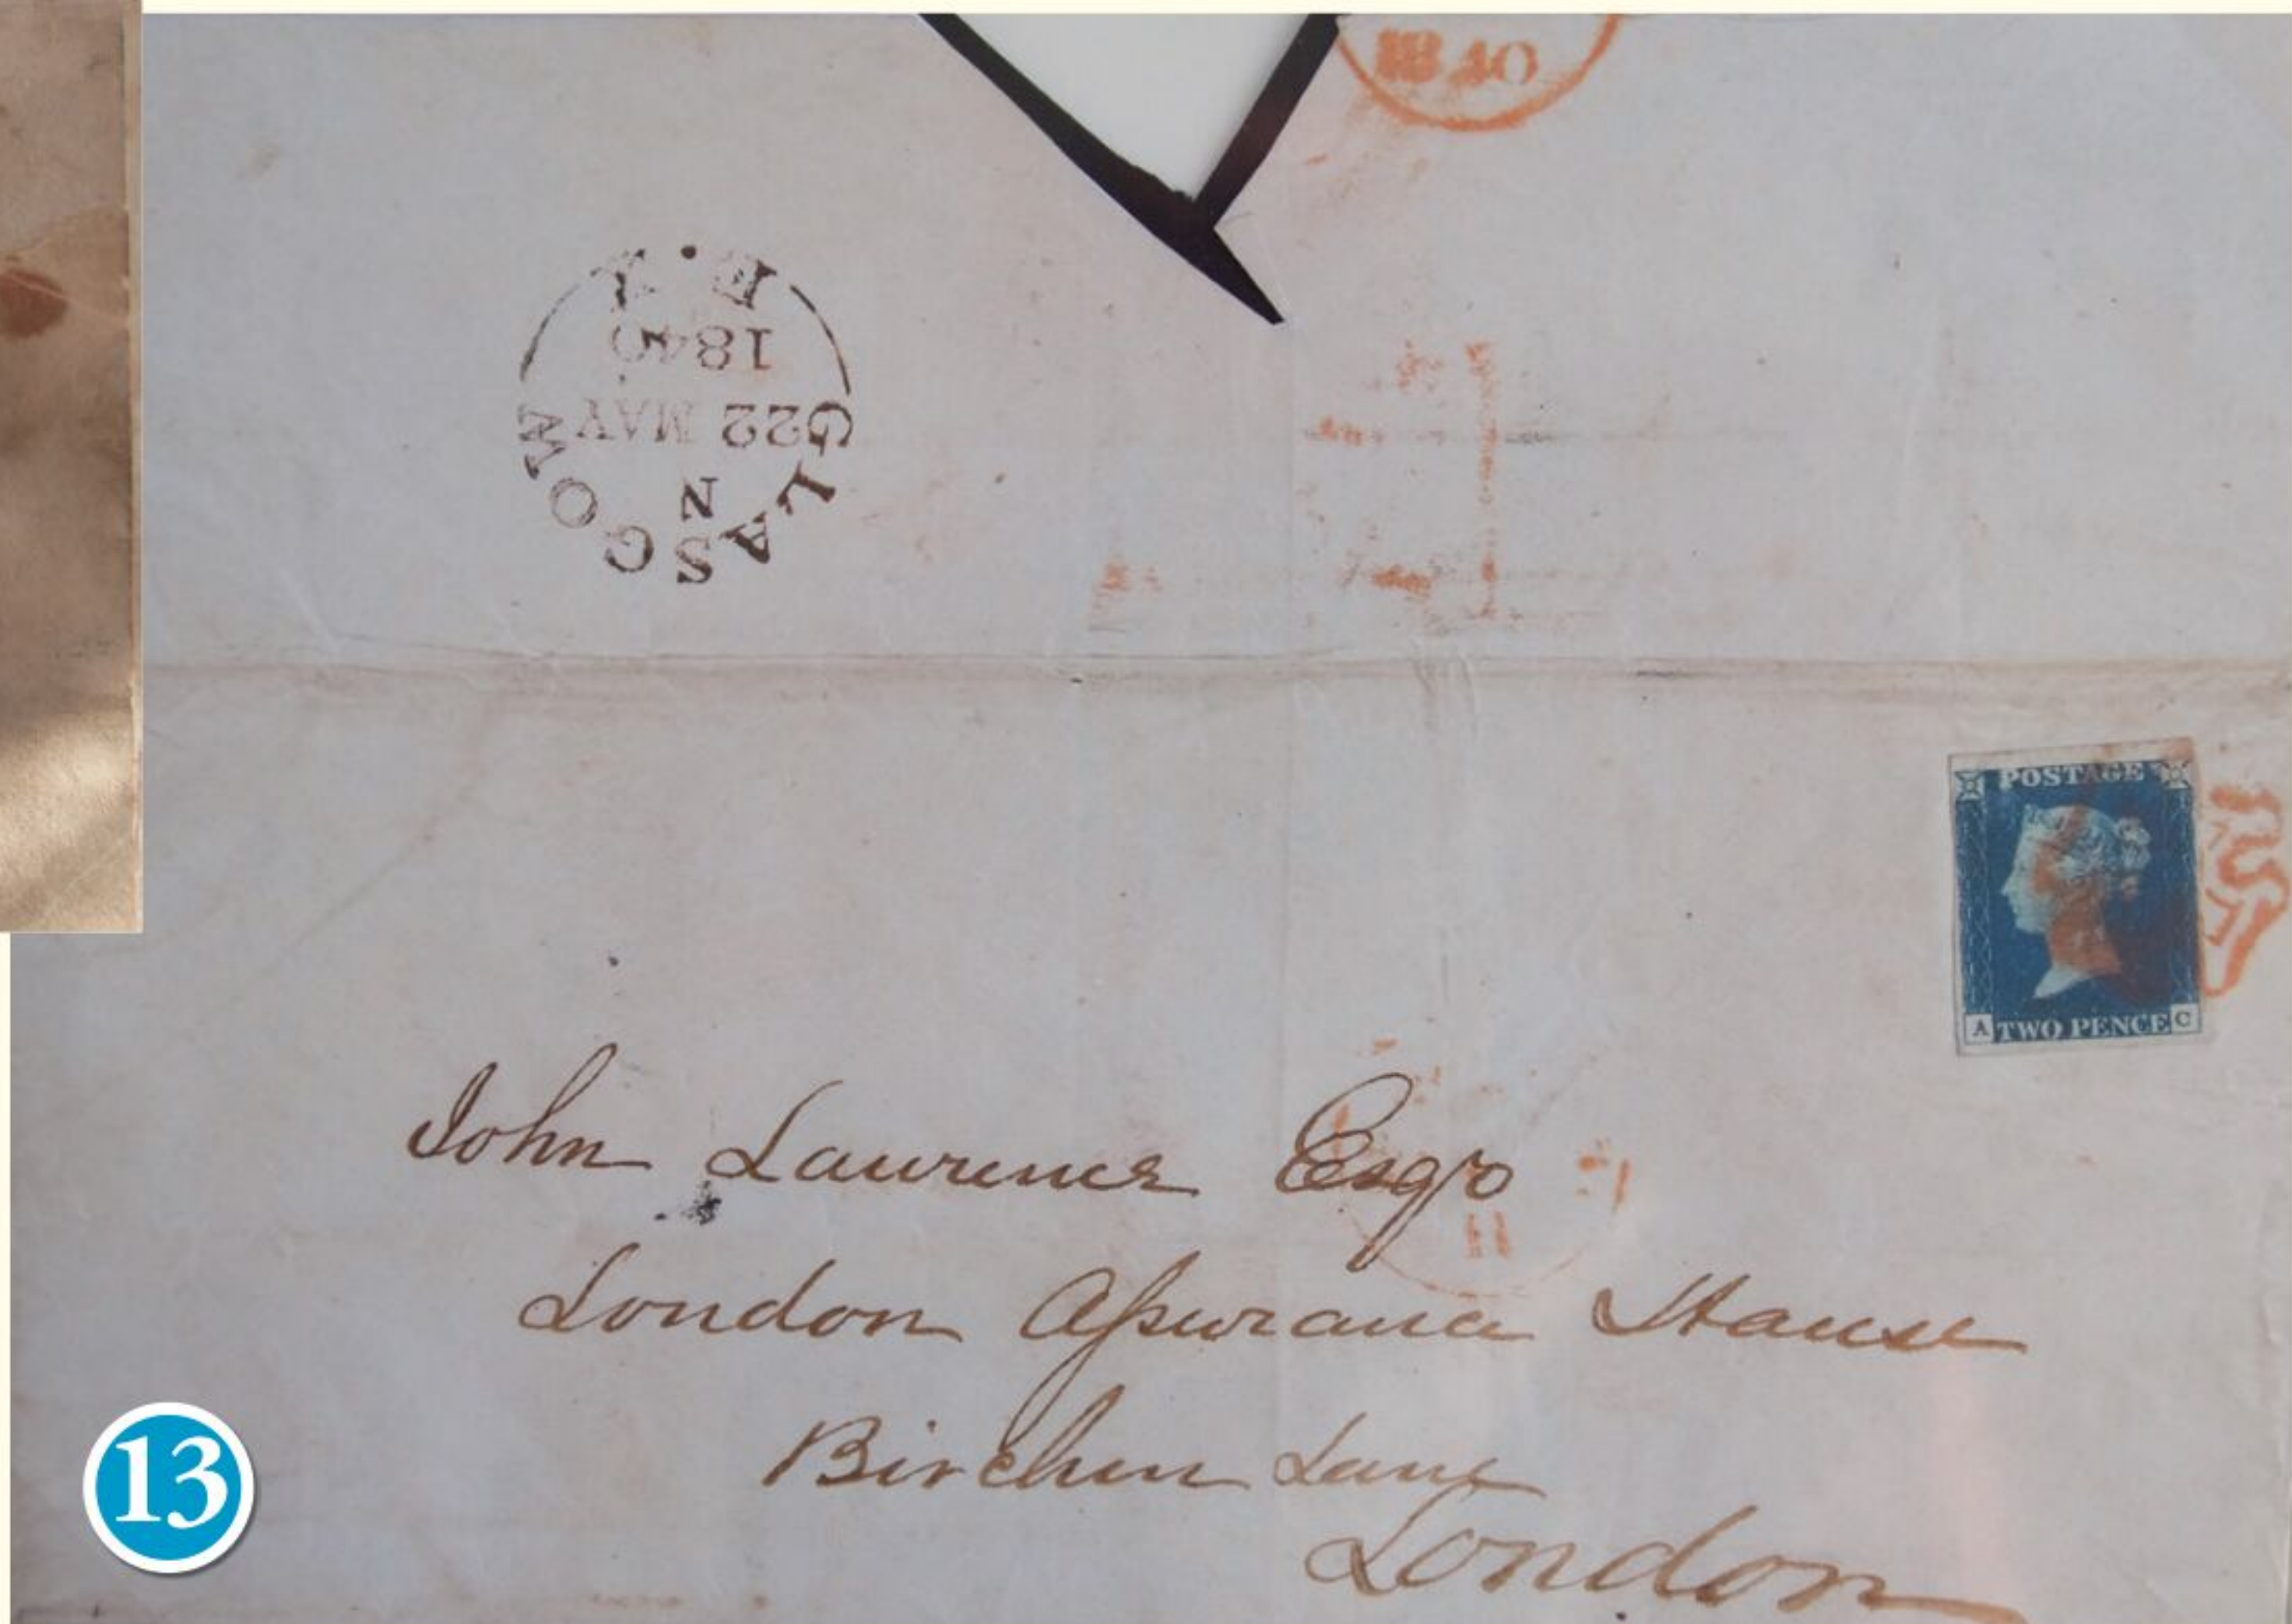 1840
GLASGOW
N
22 MAY
1840
POSTAGE
A TWO PENCE C
John Lawrence Esqre
London Assurance House
Birchin Lane
London
13